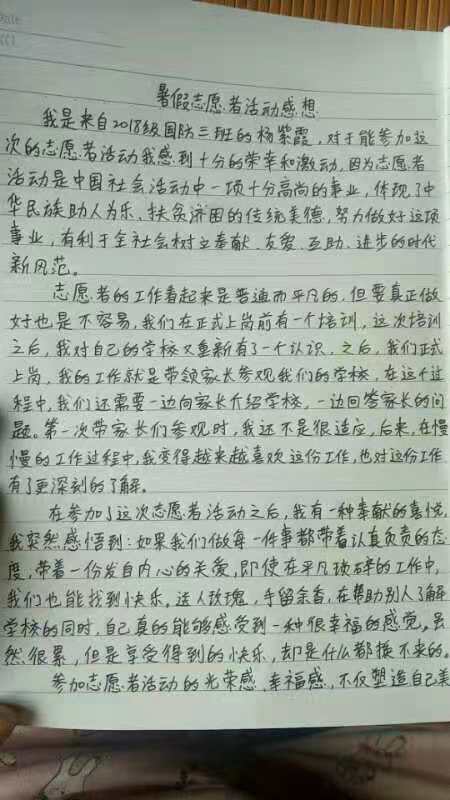 暑假志愿者活动感想
我是来自2018级国防三班的杨紫霞,对于能参加这
次的志愿者活动我感到十分的荣幸和激动,因为志愿者
活动是中国社会活动中一项十分高尚的事业,体现了中
华民族助人为乐、扶贫济困的传统美德,努力做好这项
事业,有利于全社会树立奉献、友爱、互助、进步的时代
新风范。
志愿者的工作看起来是普通而平凡的,但要真正做
好也是不容易,我们在正式上岗前有一个培训,这次培训
之后,我对自己的学校又重新有了一个认识,之后,我们正式
上岗,我的工作就是带领家长参观我们的学校,在这个过
程中,我们还需要一边向家长介绍学校,一边回答家长的问
题。第一次带家长们参观时,我还不是很适应,后来,在慢
慢的工作过程中,我变得越来越喜欢这份工作,也对这份工作
有了更深刻的了解。
在参加了这次志愿者活动之后,我有一种奉献的喜悦,
我突然感悟到:如果我们做每一件事都带着认真负责的态
度,带着一份发自内心的关爱,即使在平凡琐碎的工作中,
我们也能找到快乐。送人玫瑰,手留余香,在帮助别人了解
学校的同时,自己真的能够感受到一种很幸福的感觉。虽
然很累,但是享受得到的快乐,却是什么都换不来的。
参加志愿者活动的光荣感、幸福感,不仅塑造自己美